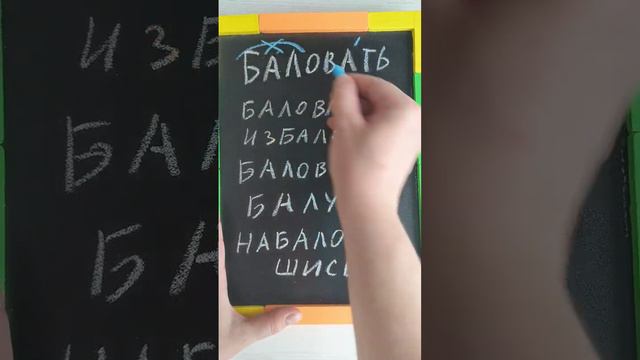 БАЛОВА́ТЬ
БАЛОВА
ИЗБАЛ
БАЛОВ
БАЛУ
НАБАЛО
ШИСЬ